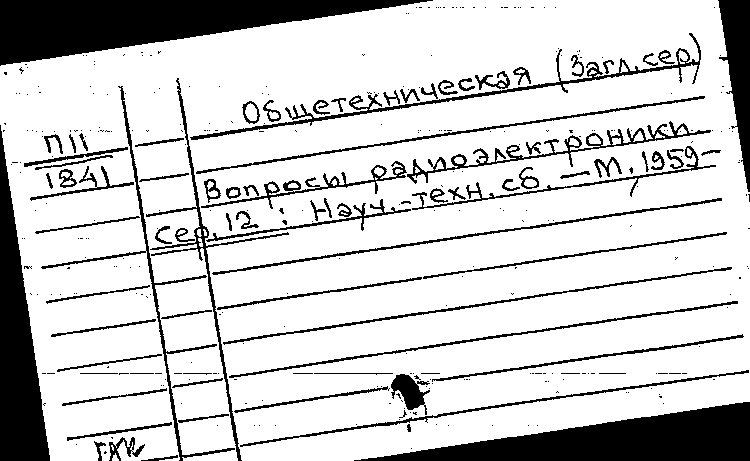 Общетехническая (Загл. сер.)
П11
1841
Вопросы радиоэлектроники.
Сер. 12 : Науч.-техн. сб. — М., 1959-